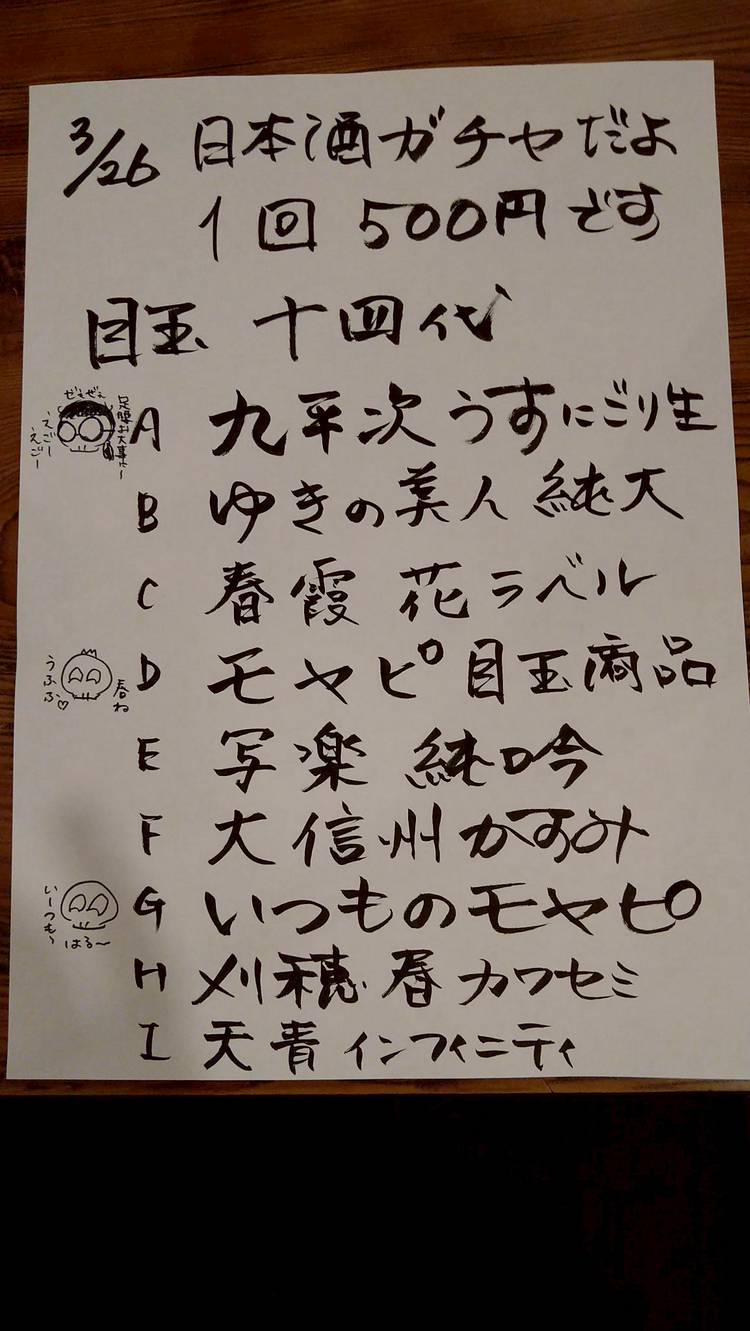 3/26 日本酒ガチャだよ
1回 500円です
目玉 十四代
ぜぇぜぇ
足腰お大事に〜
えごー
えごー
A 九平次 うすにごり生
B ゆきの美人 純大
C 春霞 花ラベル
うふふ♡
春ね
D モヤピ 目玉商品
E 写楽 純吟
F 大信州 かすみ
い〜つも〜
はる〜
G いつものモヤピ
H 刈穂 春カワセミ
I 天青 インフィニティ